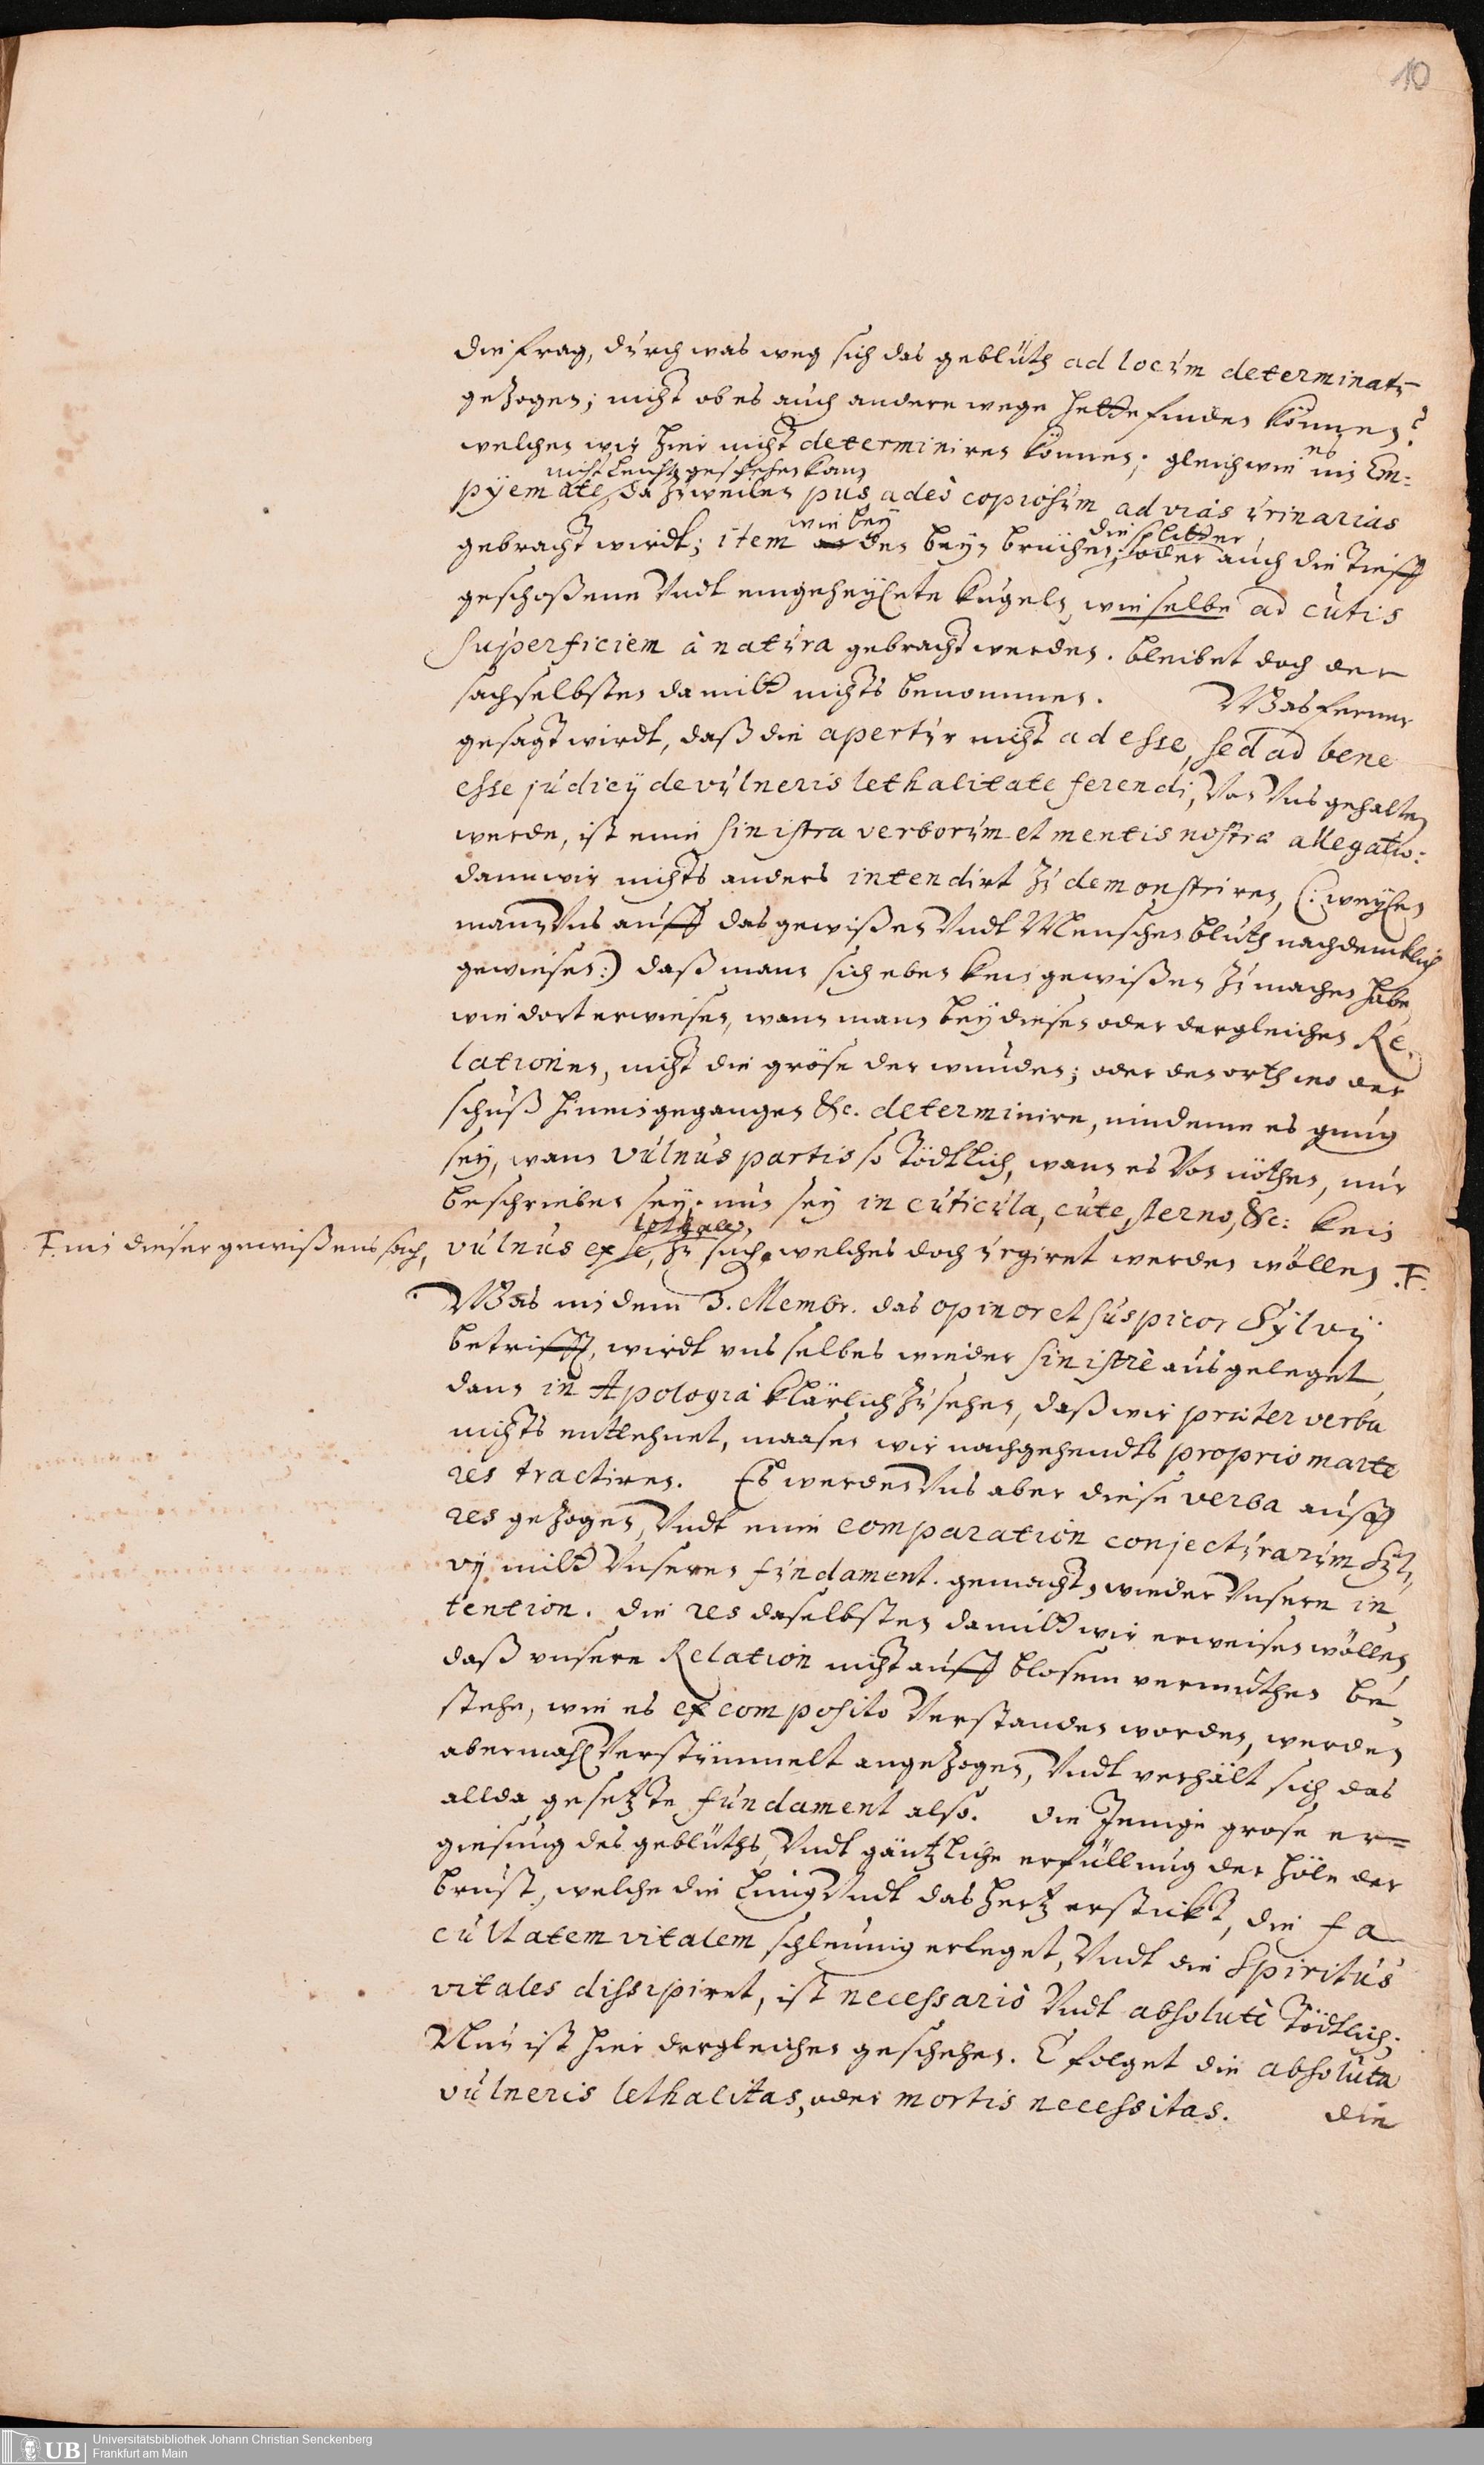 10
die frag, durch was weg sich das geblüth ad locum determinatu̅
gezogen; nicht ob es auch andere wege hette finden können?
welches wir hier nicht determiniren können; gleich wie es in Em=
nicht leicht geschehen kan
pÿemate, da zuweilen pus adeò copiosum ad vias urinarias
wie bey die splitter
gebracht wirdt; item den beyn brüchen, oder auch die tieff
geschoßene Vndt eingeheylete kugeln, wie selbe ad cutis
superficiem à natura gebracht werden. bleibet doch der
sach selbsten damitt nichts benommen. Was ferner
gesagt wirdt, daß die apertur nicht ad esse, sed ad bene
esse judicij de vulneris lethalitate ferendi, Von Vns gehalten
werde, ist eine sinistra verborum et mentis nostræ allegatio:
dann wir nichts anders intendirt zu demonstriren, (: weylen
mann Vns auff das gewißen Vndt Menschen bluth nachdencklich
gewiesen:) daß mann sich eben kein gewißen zu machen habe
wie dort erwiesen, wann mann bey diesen oder dergleichen Re,
lationen, nicht die größe der wunden; oder den orth wo der
schuß hineingegangen &c. determinire, indeme es gnug
sey, wann vulnus partis so tödtlich, wann es Von nöthen, nur
beschrieben sey. nun sey in cuticula, cute, sterno, &c: kein
lethale,
Ŧ. in dieser gewißens sach, vulnus ex se, zu such. welches doch urgiret werden wöllen .Ŧ.
Was in dem 3. Membr. das opinor et suspicor Sylvij
betrifft, wirdt vns selbes wieder sinistrè ausgeleget,
dann in Apologia klärlich zu sehen, daß wir præter verba
nichts entlehnet, maasen wir nachgehendts proprio marte
res tractiren. Es werden Vns aber diese verba auff
res gezogen, Vndt eine comparation conjecturarum Syl,
vij mitt Vnseren fundament. gemacht, wieder Vnsere in,
tention. die res daselbsten damitt wir erweisen wöllen,
daß vnsere Relation nicht auff blosem vermuthen be,
stehe, wie es ex composito Verstanden worden, werden
abermahl Verstümmelt angezogen, Vndt verhält sich das
allda gesetzte fundament also. die Jenige grose er=
giesung des geblüths, Vndt gäntzliche erfüllung der höle der
brust, welche die lung Vndt das hertz erstickt, die fa
cultatem vitalem schleunig erleget, Vndt die Spiritus
vitales dissipiret, ist necessariò Vndt absolutè tödtlich;
Nun ist hier dergleichen geschehen. E folget die absoluta
vulneris lethalitas, oder mortis necessitas. die
UB Universitätsbibliothek Johann Christian Senckenberg
Frankfurt am Main